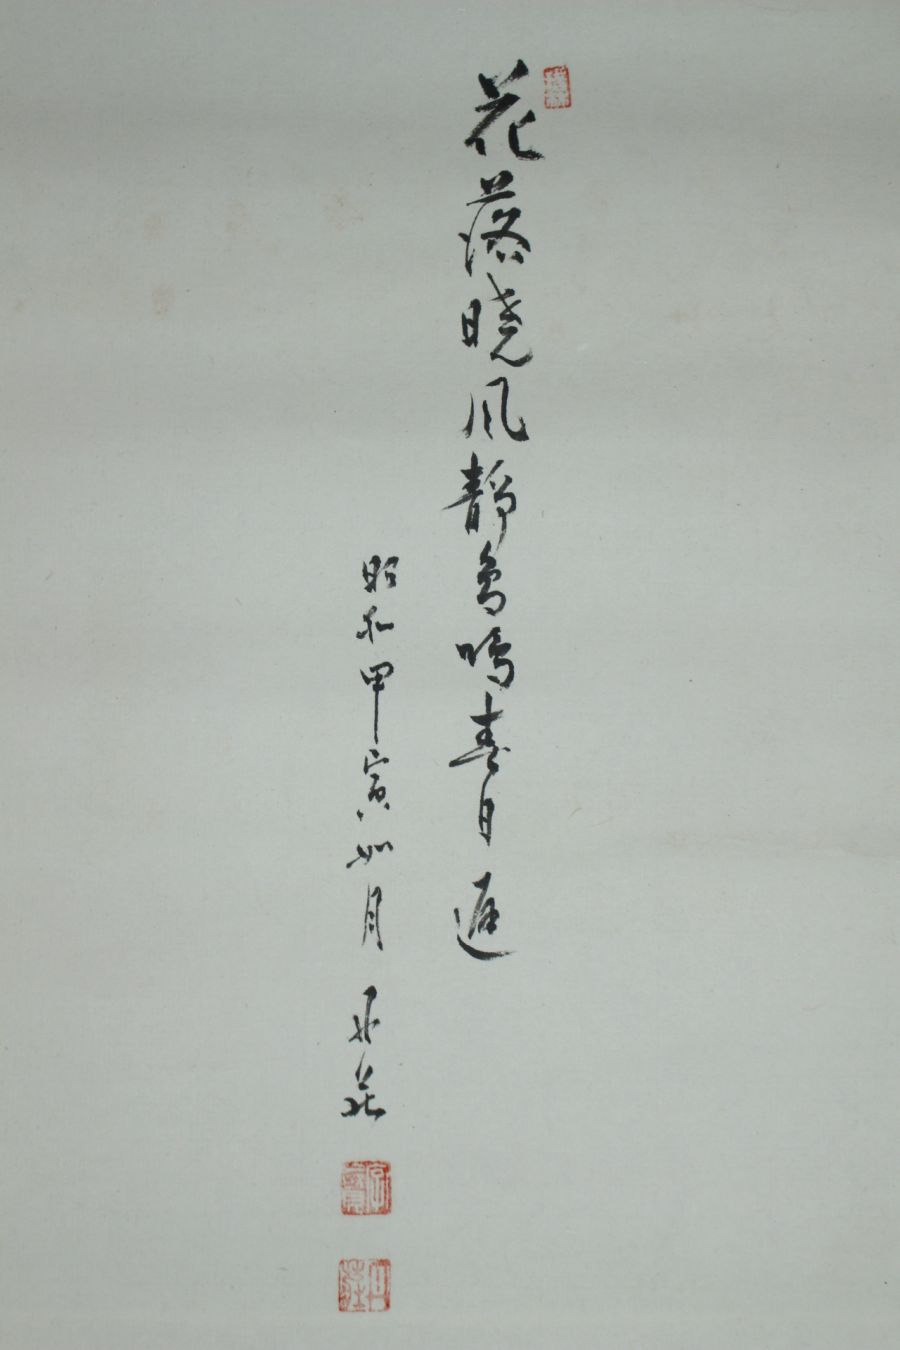 花落暁風静鳥鳴春日遲
昭和甲寅如月